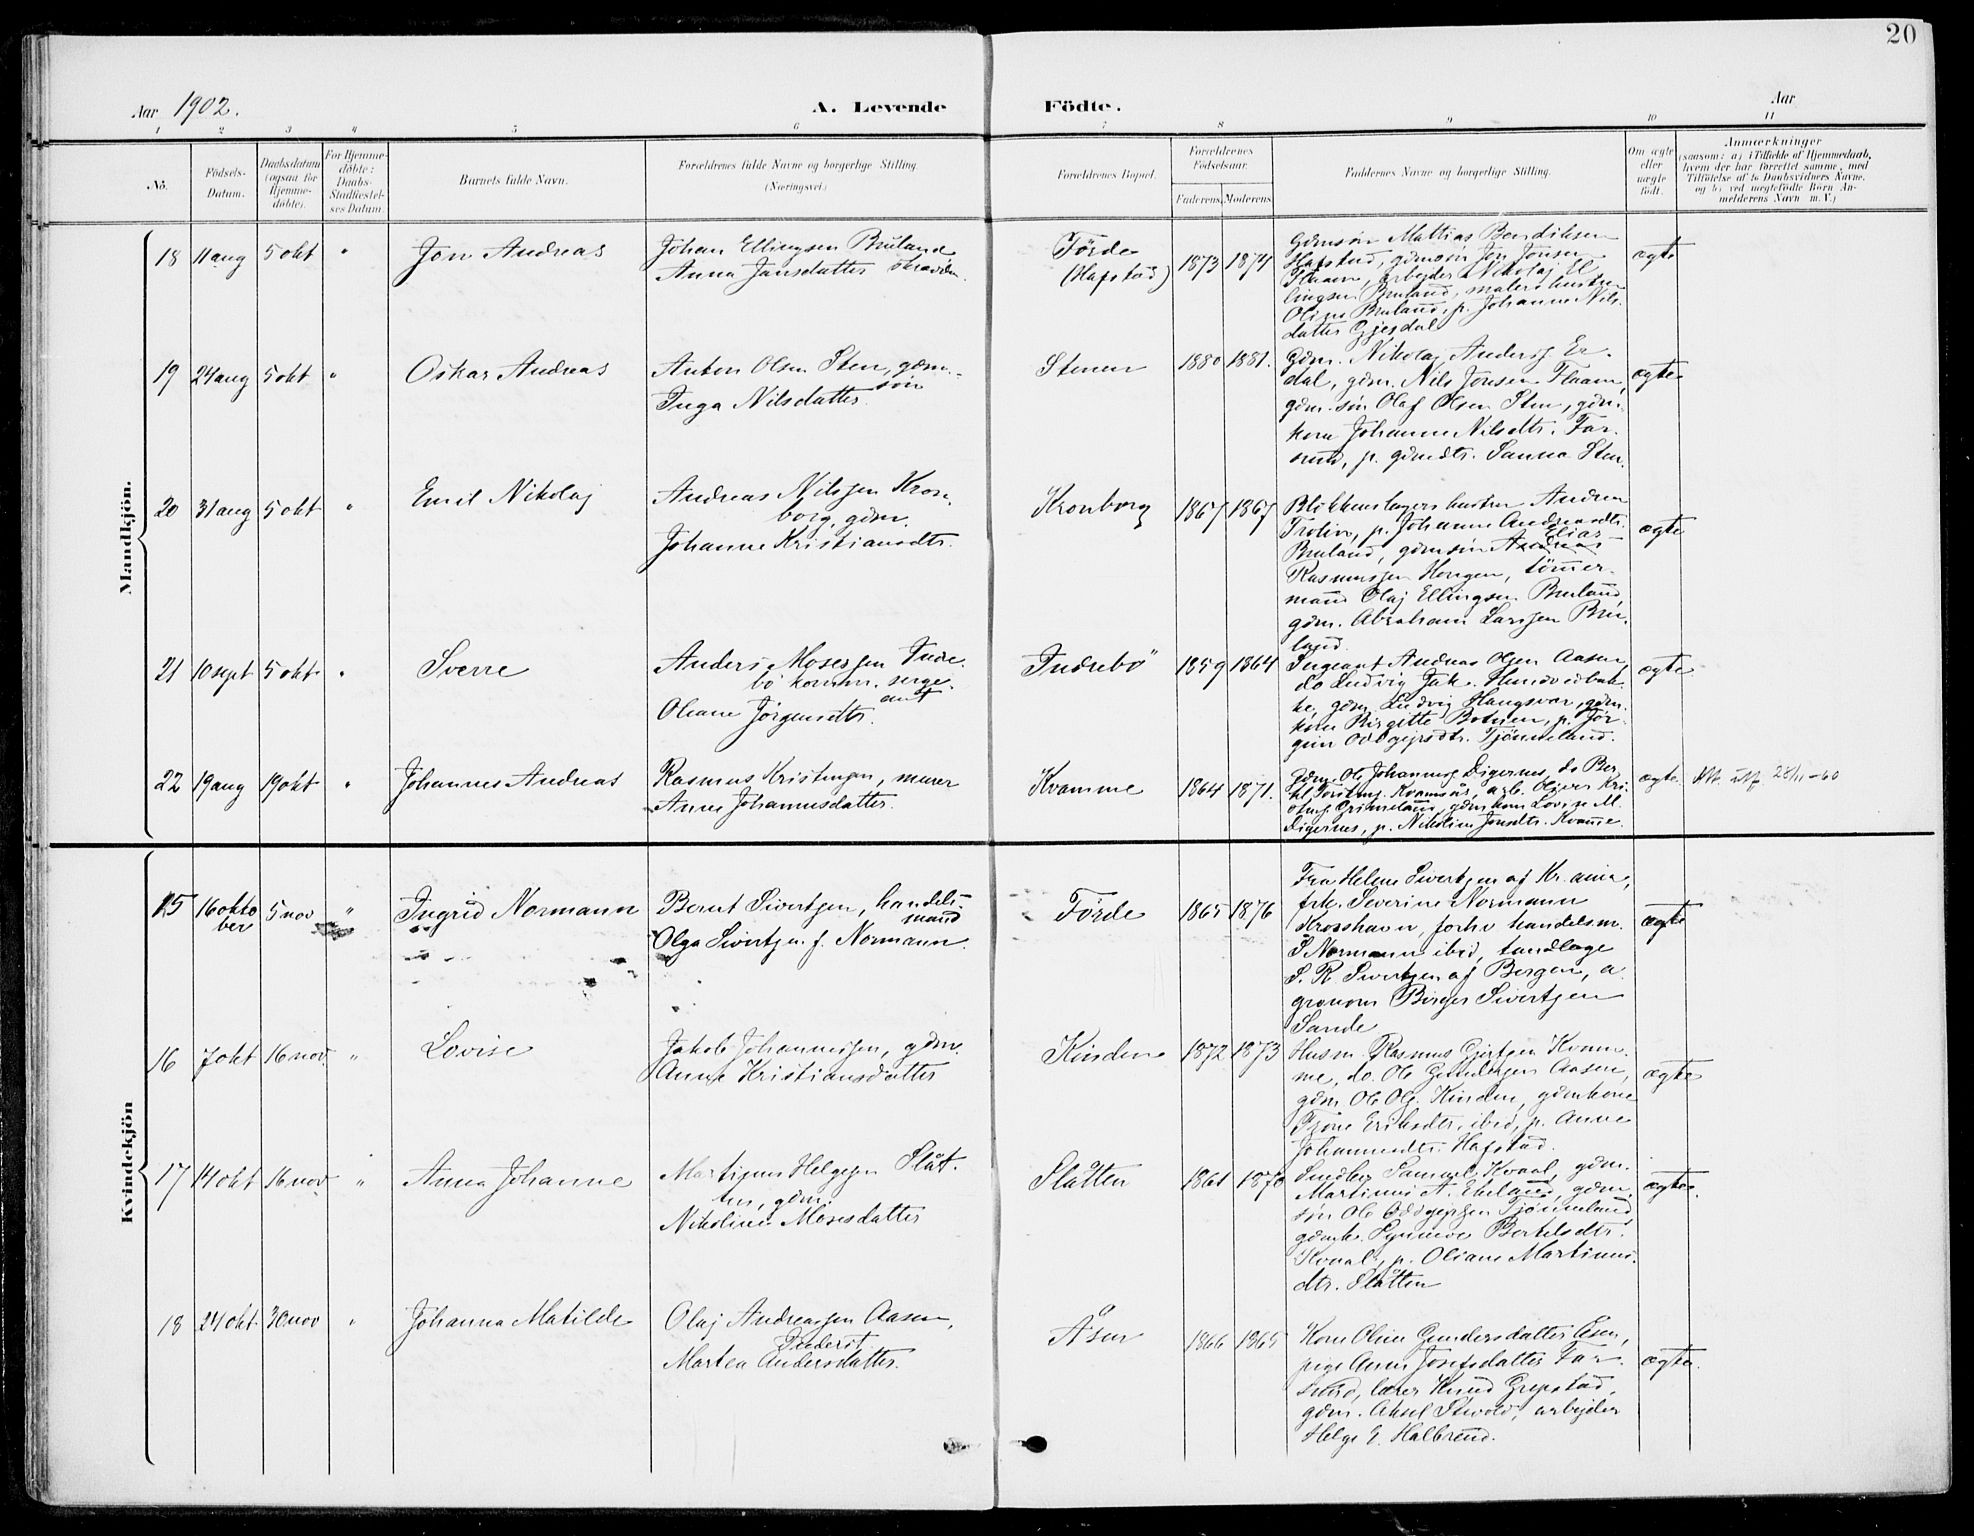 20
Aar 1902.
A. Levende Födte.
Aar
1 2 3 4 5 6 7 8 9 10 11
No.
Födsels-
Datum.
Daabsdatum
(ogsaa for
Hjemme-
döbte).
For Hjemme-
döbte:
Daabs-
Stadfæstel-
ses Datum.
Barnets fulde Navn.
Forældrenes fulde Navne og borgerlige Stilling.
(Næringsvei.)
Forældrenes Bopæl.
Forældrenes
Födselsaar.
Faderens. Moderens.
Faddernes Navne og borgerlige Stilling.
Om ægte
eller
uægte
födt.
Anmærkninger
(saasom: a) i Tilfælde af Hjemmedaab,
hvem der har forrettet samme, med
Tilföielse af to Daabsvidners Navne,
og b) ved uægtefödte Börn An-
melderens Navn m. V.)
Mandkjön.
18 11 aug 5 okt " Jon Andreas
Johan Ellingsen Bruland
Anna Jansdatter
Förde
(Hafstad)
1873 1874
Gdmsön Mattias Bendiksen
Hafstad, gdmsön Jon Jonsen
Flaam, arbeider Nikolaj El
lingsen Bruland, malers hustru
Oline Bruland, p. Johanne Nils
datter Gjesdal
ægte
19 24 aug 5 okt " Oskar Andreas
Anton Olsen Sten, gdm.
sön
Inga Nilsdatter.
Stenen
1880 1881.
Gdm. Nikolaj Anders. Er-
dal, gdm. Nils Jonsen Flaam,
gdm. sön Olaf Olsen Sten, gdm.
kone Johanne Nilsdtr. Far
sund, p. gdmdtr. Sanna Sten.
ægte
20 31 aug 5 okt " Emil Nikolaj
Andreas Nilssen Kron
borg, gdm.
Johanne Kristiansdtr.
Kronborg
1867 1867
Blikkenslagers hustru Andrea
p. Johanne Andreasdtr.
Elias
Bruland, gdmsön Andreas
Rasmussen Hongen, tömmer-
mand Olaj Ellingsen Bruland
gdm. Abraham Larssen Bru
land.
ægte
21 10 sept 5 okt " Sverre
Anders Mosessen Indre
bö komm. serge
ant
Oliane Jörgensdtr.
Indrebö
1859 1864
Sergeant Andreas Olsen Aasen,
do Ludvig Jak. Hundvedbak
ke, gdm. Ludvig Haugsvar, gdm.
kone Birgitte Botnen, p. Jör
gine Oddgejrsdtr. Tjönneland.
ægte
22 19 aug 19 okt " Johannes Andreas
Rasmus Kristensen, murer
Anne Johannesdatter.
Kvamme
1864 1871.
Gdm. Ole Johanness. Digernes, do Ber
tel Torstens. Kvamsås, arb. Oliver Kri
stens. Grimeland, gdmkone Lovise M.
Digernes, p. Nikoline Jonsdtr. Kvamme.
ægte. 28/11-60
Kvindekjön
15 16 okto
ber
5 nov " Ingrid Normann
Bernt Sivertsen, handels-
mand
Olga Sivertsen f. Normann.
Förde
1865 1876
Fru Helene Sivertsen af Kr.ania,
frk. Severine Normann
Krosshavn, forhv handelsm.
S Normann ibid, tandlæge
S. R. Sivertsen af Bergen, a
gronom Birger Sivertsen
Sande
ægte
16 7 okt 16 nov. " Lovise
Jakob Johannessen, gdm.
Anne Kristiansdatter
Kinden
1872 1873
Husm. Rasmus Gjertsen Kvam
me, do. Ole Gundersen Aasen,
gdm Ole Ols. Kinden, gdmkone
Trone Eriksdtr. ibid, p. Anne
Johannesdtr. Hafstad.
ægte
17 14 okt 16 nov " Anna Johanne
Martinus Helgesen Slåt.
ten, gdm.
Nikoline Mosesdatter
Slåtten
1861 1870
Snedker Samuel Kvaal, gdm.
Martinus A. Ekeland, gdm.
sön Ole Oddgejrsen Tjönneland
gdmk. Synneve Bertelsdtr.
Kvaal, p. Oliane Martinus
dtr. Slåtten
ægte.
18 24 okt. 30 nov " Johanna Matilde
Olaj Andreassen Aasen,
Martea Andersdatter.
Åsen
1866 1865
Kone Oline Gundersdatter Åsen,
pige Anne Josefsdatter Far
sund, lærer Knud Grepstad,
gdm. Aksel Sivold, arbejder
Helge E. Halbrend.
ægte.